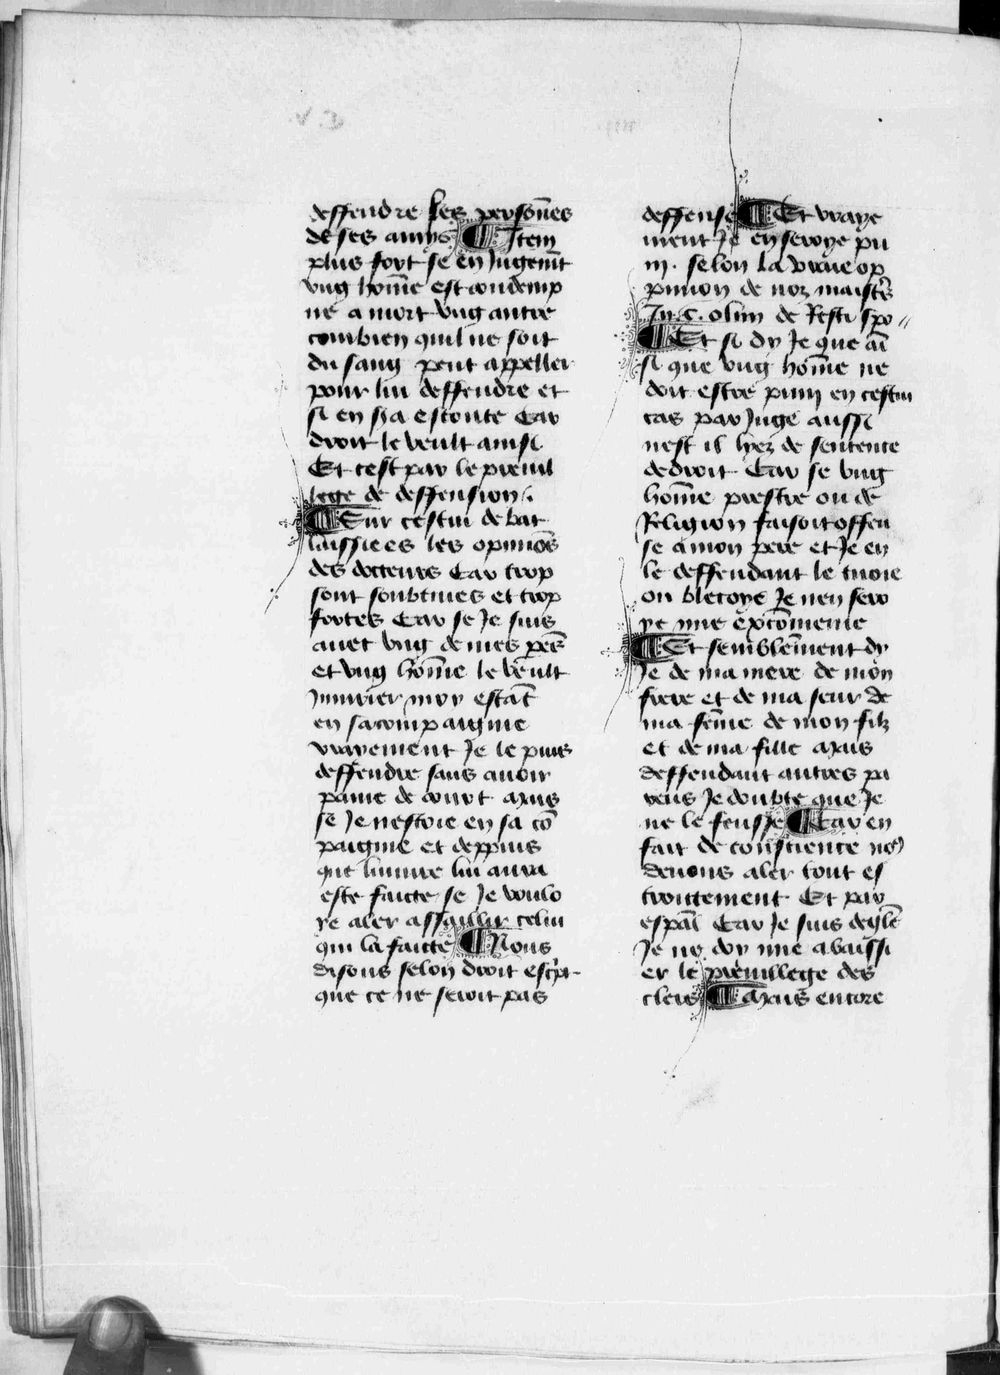 deffendre les persōnes
de ses amys ¶ Item
plus fort se en Jugemt
vng hom̄e est condemp
ne a mort vng autre
combien quil ne soit
du sang peut appeller
pour lui deffendre et
si en sera escoute Car
droit le veult ainsi
Et cest par le preuil
lege de deffension.
¶ Sur cestui debat
laissiees les opiniōs
des docteurs Car trop
sont soubtiues et trop
fortes Car se Je suis
auec vng de mes pēs
et vng hom̄e le veult
Iniurier moy estāt
en sa compaignie
vrayement Je le puis
deffendre sans auoir
paine de court Mais
se Je nestoie en sa cō
paignie et deppuis
que liniure lui aura
este faicte se Je vouloi
ye aler assaillir celui
qui la faicte ¶ Nous
disons selon droit escript
que ce ne seroit pas
deffense ¶ Et vraye
ment Je en seroye pu
ni. selon la vraie op
pinion de noz maistrs
In. c. olim de Resti spo
¶ Et si dy Je que ai
si que vng hom̄e ne
doit estre puny en cestui
cas par Juge aussi
nest il lyez de sentence
de droit Car se vng
hom̄e prestre ou de
Religion faisoit offen
se a mon pere et Je en
le deffendant le tuoie
ou blecoye Je nen sero
ye mie excōmenie
¶ Et semblem̄ent dy
Je de ma mere de mon
frere et de ma seur de
ma fēme de mon filz
et de ma fille Mais
deffendant autres pa
rens Je doubte que Je
ne le feusse ¶ Car en
fait de conscience no9
deuons aler tout es
troittement Et par
espāl Car Je suis deglē
Je ne doy mie abaissi
er le preuillege des
clers ¶ Mais encore